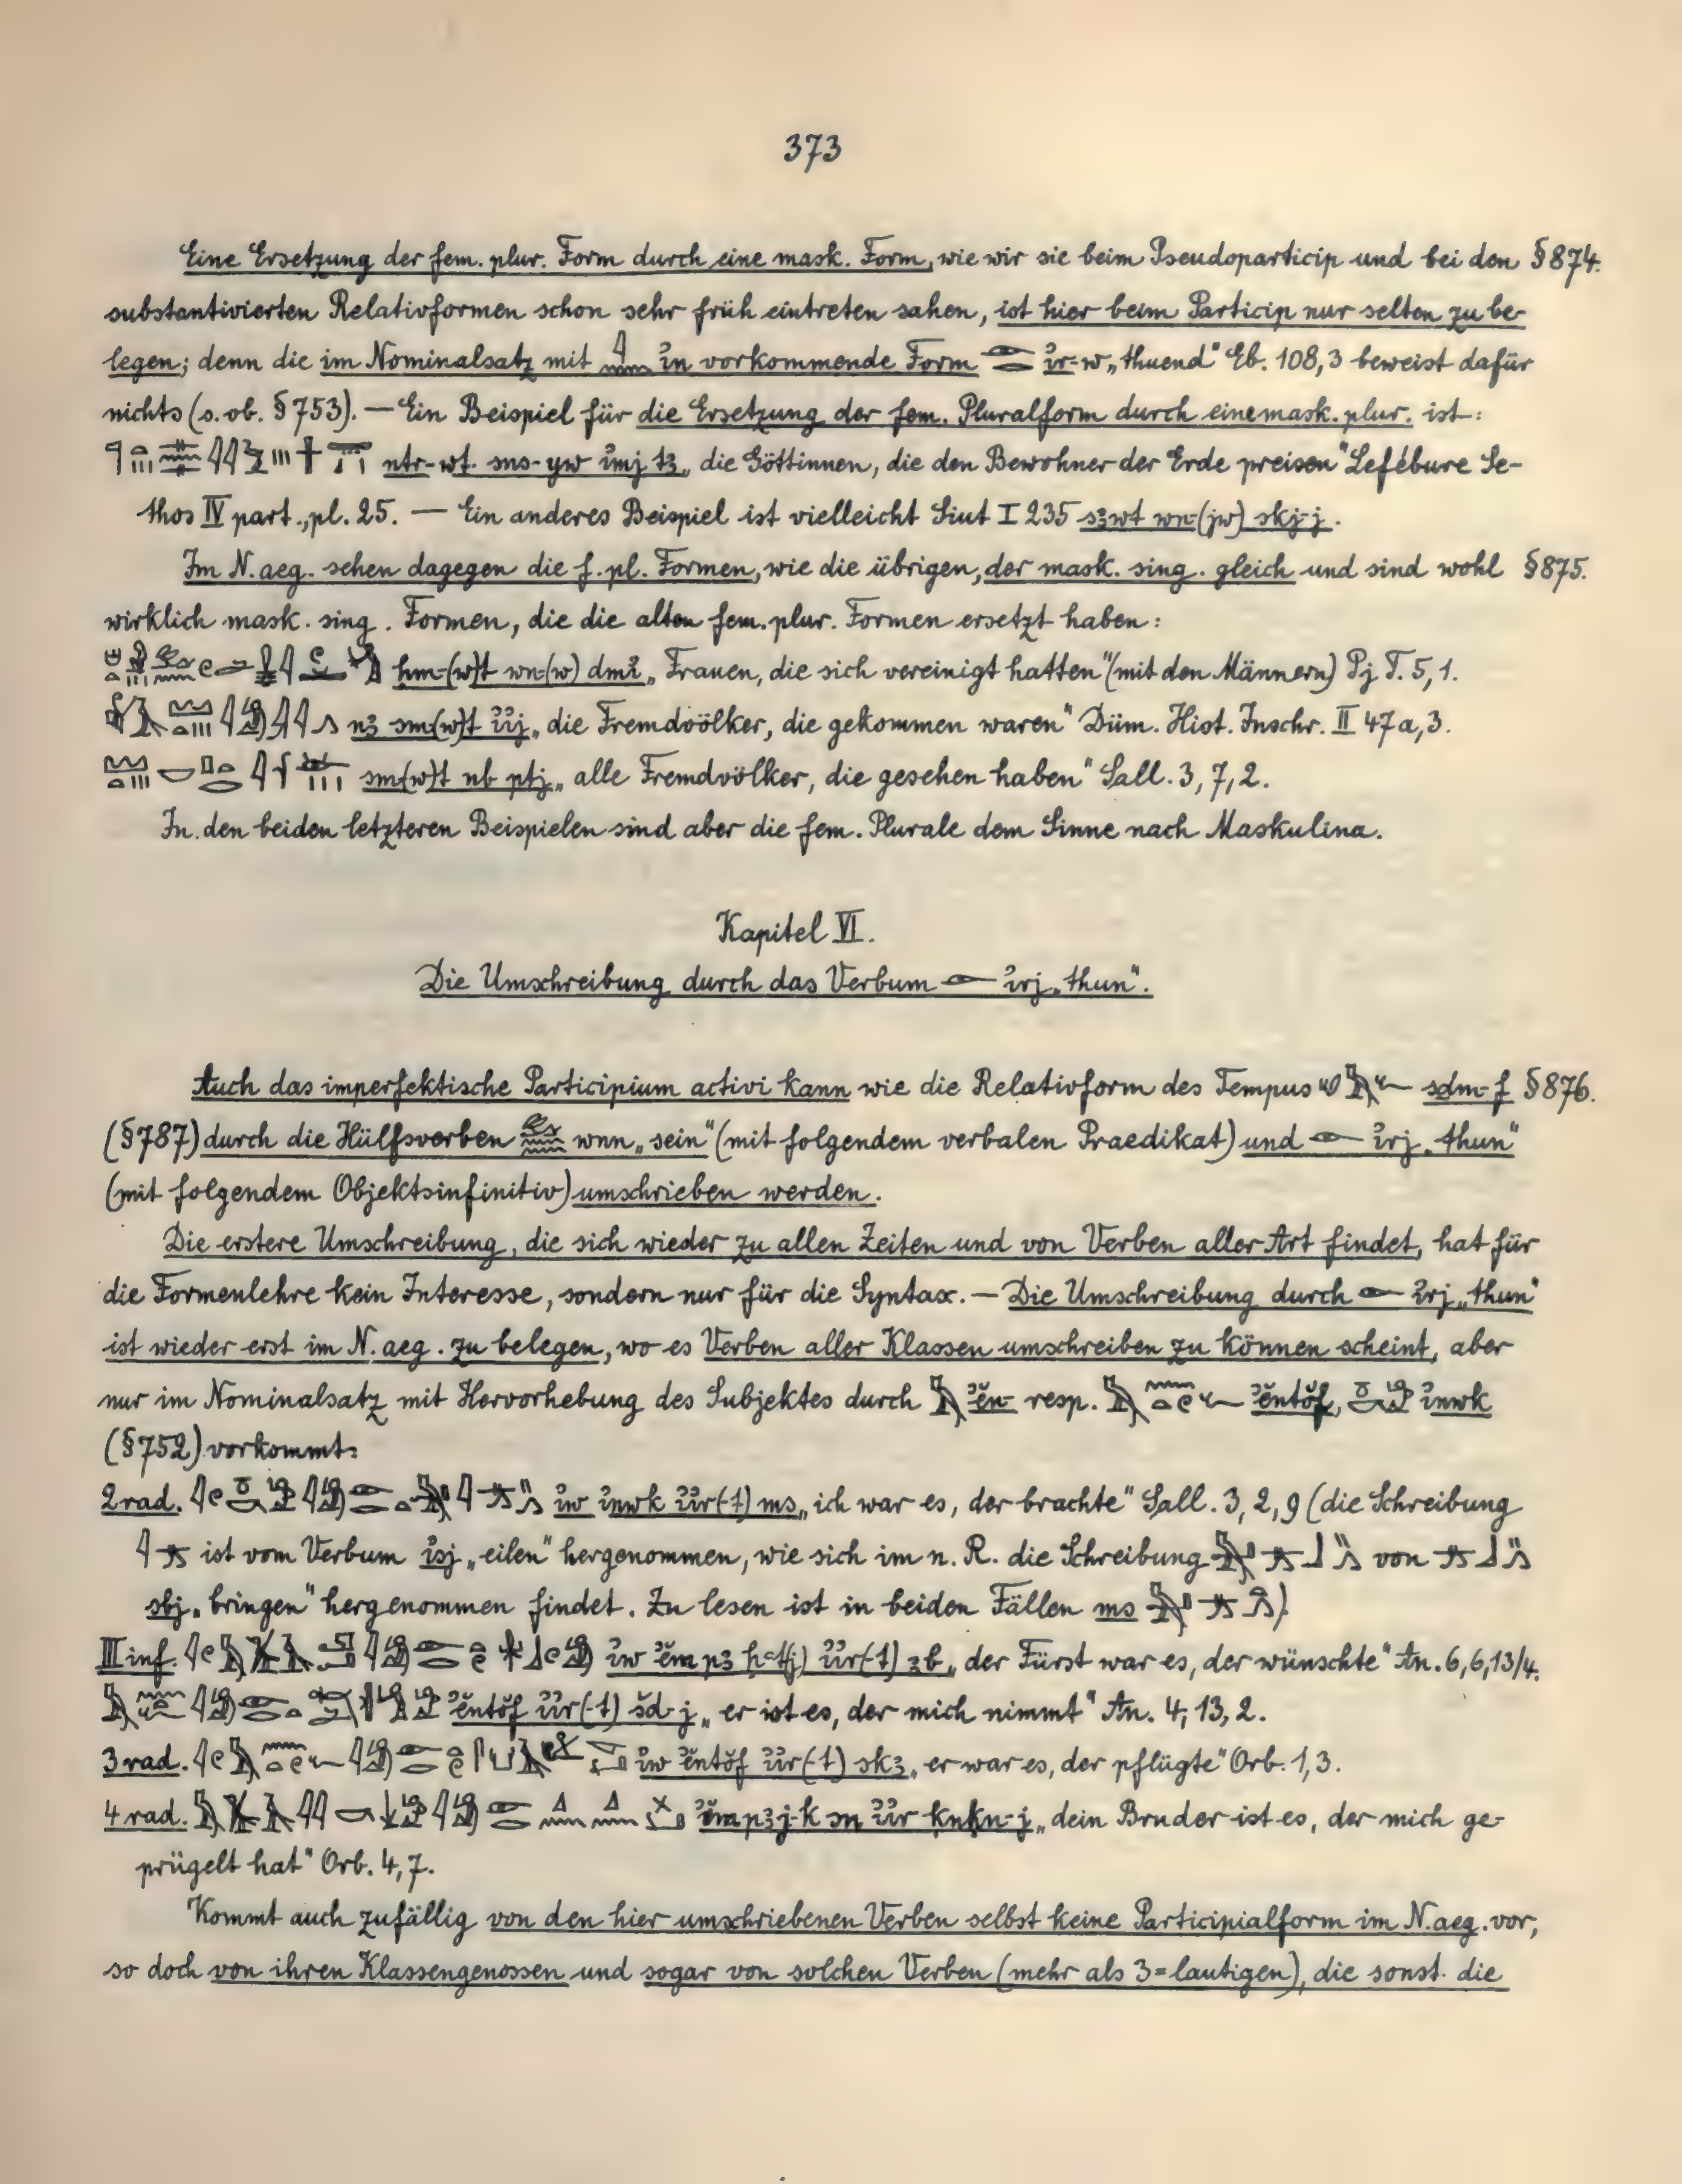 373
Eine Ersetzung der fem. plur. Form durch eine mask. Form, wie wir sie beim Pseudoparticip und bei den §874.
substantivierten Relativformen schon sehr früh eintreten sahen, ist hier beim Particip nur selten zu be-
legen; denn die im Nominalsatz mit 𓇋𓈖 i҆n vorkommende Form 𓁹𓂋 i҆r-w „thuend“ Eb. 108,3 beweist dafür
nichts (s. ob. §753). — Ein Beispiel für die Ersetzung der fem. Pluralform durch eine mask. plur. ist:
ntr-wt. sns-yw i҆mj tꜣ „die Göttinnen, die den Bewohner der Erde preisen“ Lefébure Se-
thos IV part., pl. 25. — Ein anderes Beispiel ist vielleicht Siut I 235 sꜣwt wn-(jw) skj-j.
Im N. aeg. sehen dagegen die f. pl. Formen, wie die übrigen, der mask. sing. gleich und sind wohl §875.
wirklich mask. sing. Formen, die die alten fem. plur. Formen ersetzt haben:
hm-(w)t wn-(w) dmi҆ „Frauen, die sich vereinigt hatten“ (mit den Männern) Pj T. 5,1.
nꜣ sm-(w)t i҆i҆j „die Fremdvölker, die gekommen waren“ Düm. Hist. Inschr. II 47a,3.
sm-(w)t nb ptj „alle Fremdvölker, die gesehen haben“ Sall. 3,7,2.
In den beiden letzteren Beispielen sind aber die fem. Plurale dem Sinne nach Maskulina.
Kapitel VI.
Die Umschreibung durch das Verbum 𓁹 i҆rj „thun“.
Auch das imperfektische Participium activi kann wie die Relativform des Tempus sdm-f §876.
(§787) durch die Hülfsverben wnn „sein“ (mit folgendem verbalen Praedikat) und 𓁹 i҆rj „thun“
(mit folgendem Objektsinfinitiv) umschrieben werden.
Die erstere Umschreibung, die sich wieder zu allen Zeiten und von Verben aller Art findet, hat für
die Formenlehre kein Interesse, sondern nur für die Syntax. — Die Umschreibung durch 𓁹 i҆rj „thun“
ist wieder erst im N. aeg. zu belegen, wo es Verben aller Klassen umschreiben zu können scheint, aber
nur im Nominalsatz mit Hervorhebung des Subjektes durch ĕn- resp. ĕntŏf, i҆nwk
(§752) vorkommt:
2 rad. i҆w i҆nwk i҆i҆r(-t) ms „ich war es, der brachte“ Sall. 3,2,9 (die Schreibung
ist vom Verbum i҆sj „eilen“ hergenommen, wie sich im n. R. die Schreibung von
sbj „bringen“ hergenommen findet. Zu lesen ist in beiden Fällen ms
III inf. i҆w ĕm pꜣ ḥꜥtj) i҆i҆r(-t) ꜣb „der Fürst war es, der wünschte“ An. 6,6,13/4.
ĕntŏf i҆i҆r(-t) šd-j „er ist es, der mich nimmt“ An. 4,13,2.
3 rad. i҆w ĕntŏf i҆i҆r(-t) skꜣ „er war es, der pflügte“ Orb. 1,3.
4 rad. ĕm pꜣj-k sn i҆i҆r ḳnḳn-j „dein Bruder ist es, der mich ge-
prügelt hat“ Orb. 4,7.
Kommt auch zufällig von den hier umschriebenen Verben selbst keine Participialform im N. aeg. vor,
so doch von ihren Klassengenossen und sogar von solchen Verben (mehr als 3=lautigen), die sonst die